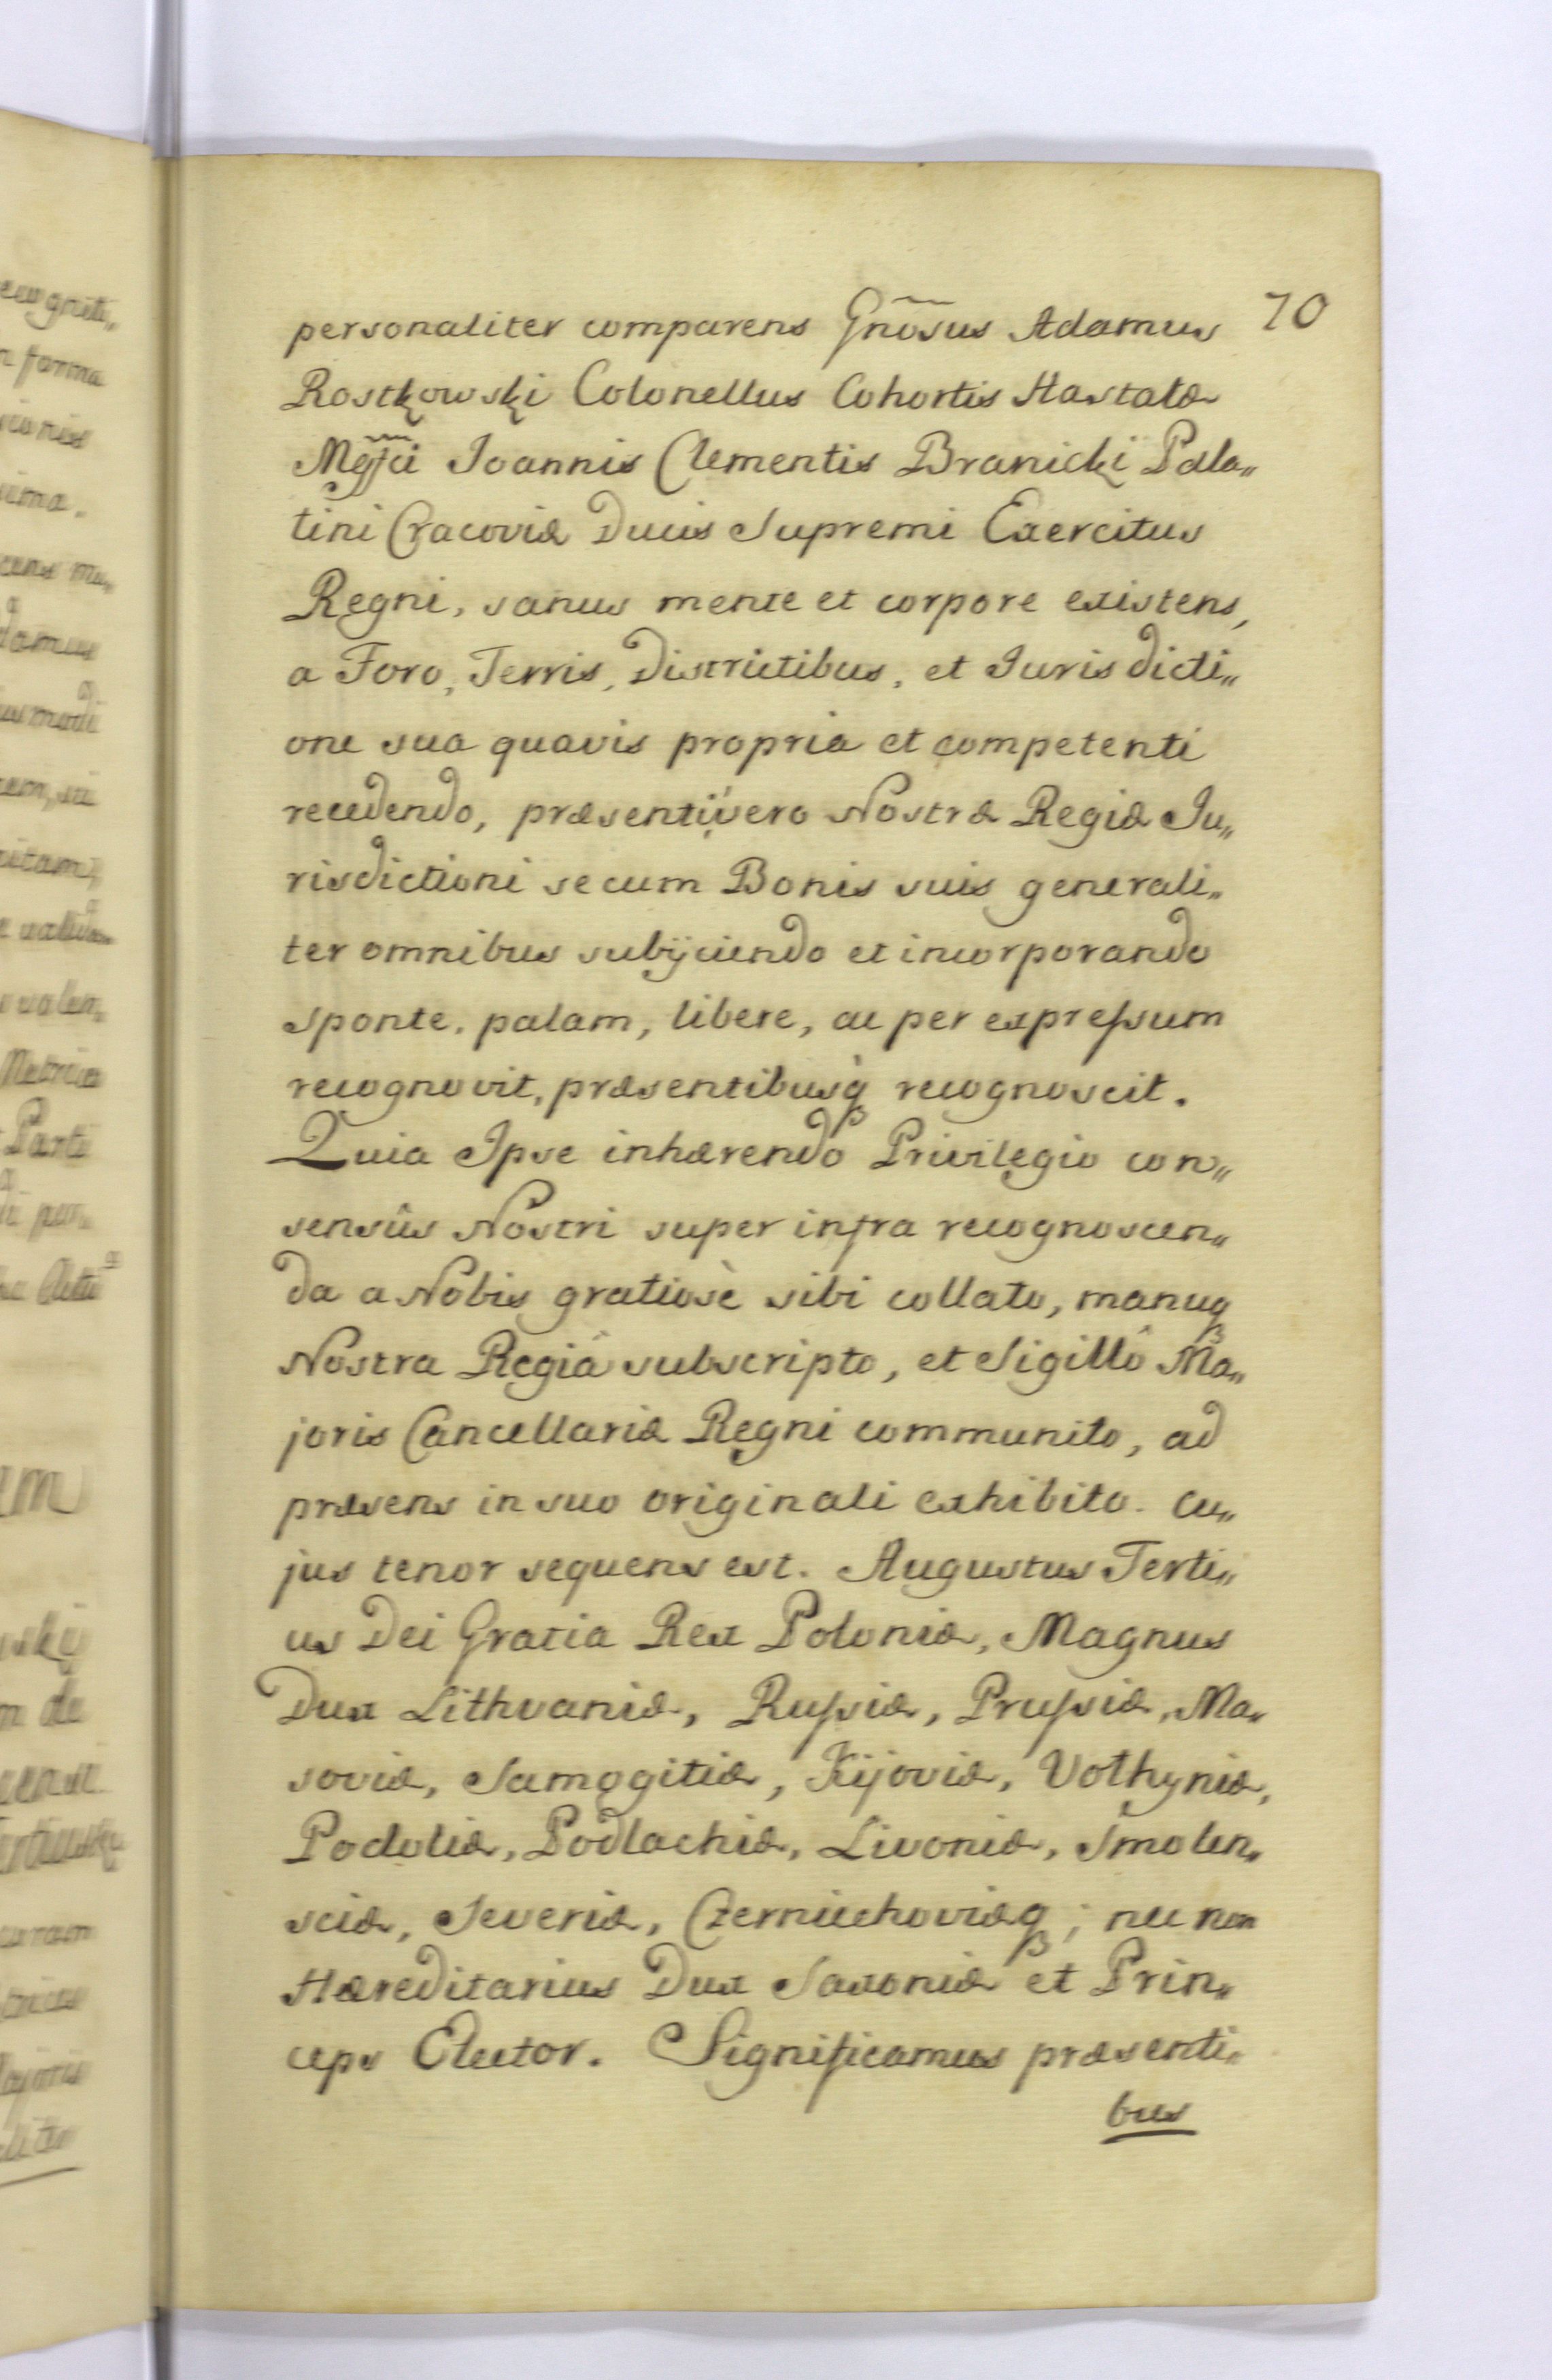 70
personaliter comparens Gnõsus Adamus
Rostkowski Colonellus Cohortis Hastatæ
Mgfci Joannis Clementis Branicki Pala„
tini Cracoviæ Ducis Supremi Exercitus
Regni, sanus mente et corpore existens,
a Foro, Terris, Districtibus, et Jurisdicti„
one sua quavis propria et competenti
recedendo, præsenti vero Nostræ Regiæ Ju„
risdictioni se cum Bonis suis generali„
ter omnibus subijciendo et incorporando
sponte, palam, libere, ac per expressum
recognovit, præsentibusq recognoscit.
Quia Ipse inhærendo Privilegio con„
sensûs Nostri super infra recognoscen„
da a Nobis gratiosè sibi collato, manuq
Nostra Regiâ subscripto, et Sigillô Ma„
joris Cancellariæ Regni communito, ad
præsens in suo originali exhibito. Cu„
jus tenor sequens est. Augustus Terti„
us Dei Gratia Rex Poloniæ, Magnus
Dux Lithvaniæ, Russiæ, Prussiæ, Ma„
soviæ, Samogitiæ, Kijoviæ, Volhyniæ,
Podoliæ, Podlachiæ, Livoniæ, Smolen„
sciæ, Severiæ, Czerniechoviæq; nec non
Hæreditarius Dux Saxoniæ et Prin„
ceps Elector. Significamus præsenti„
bus